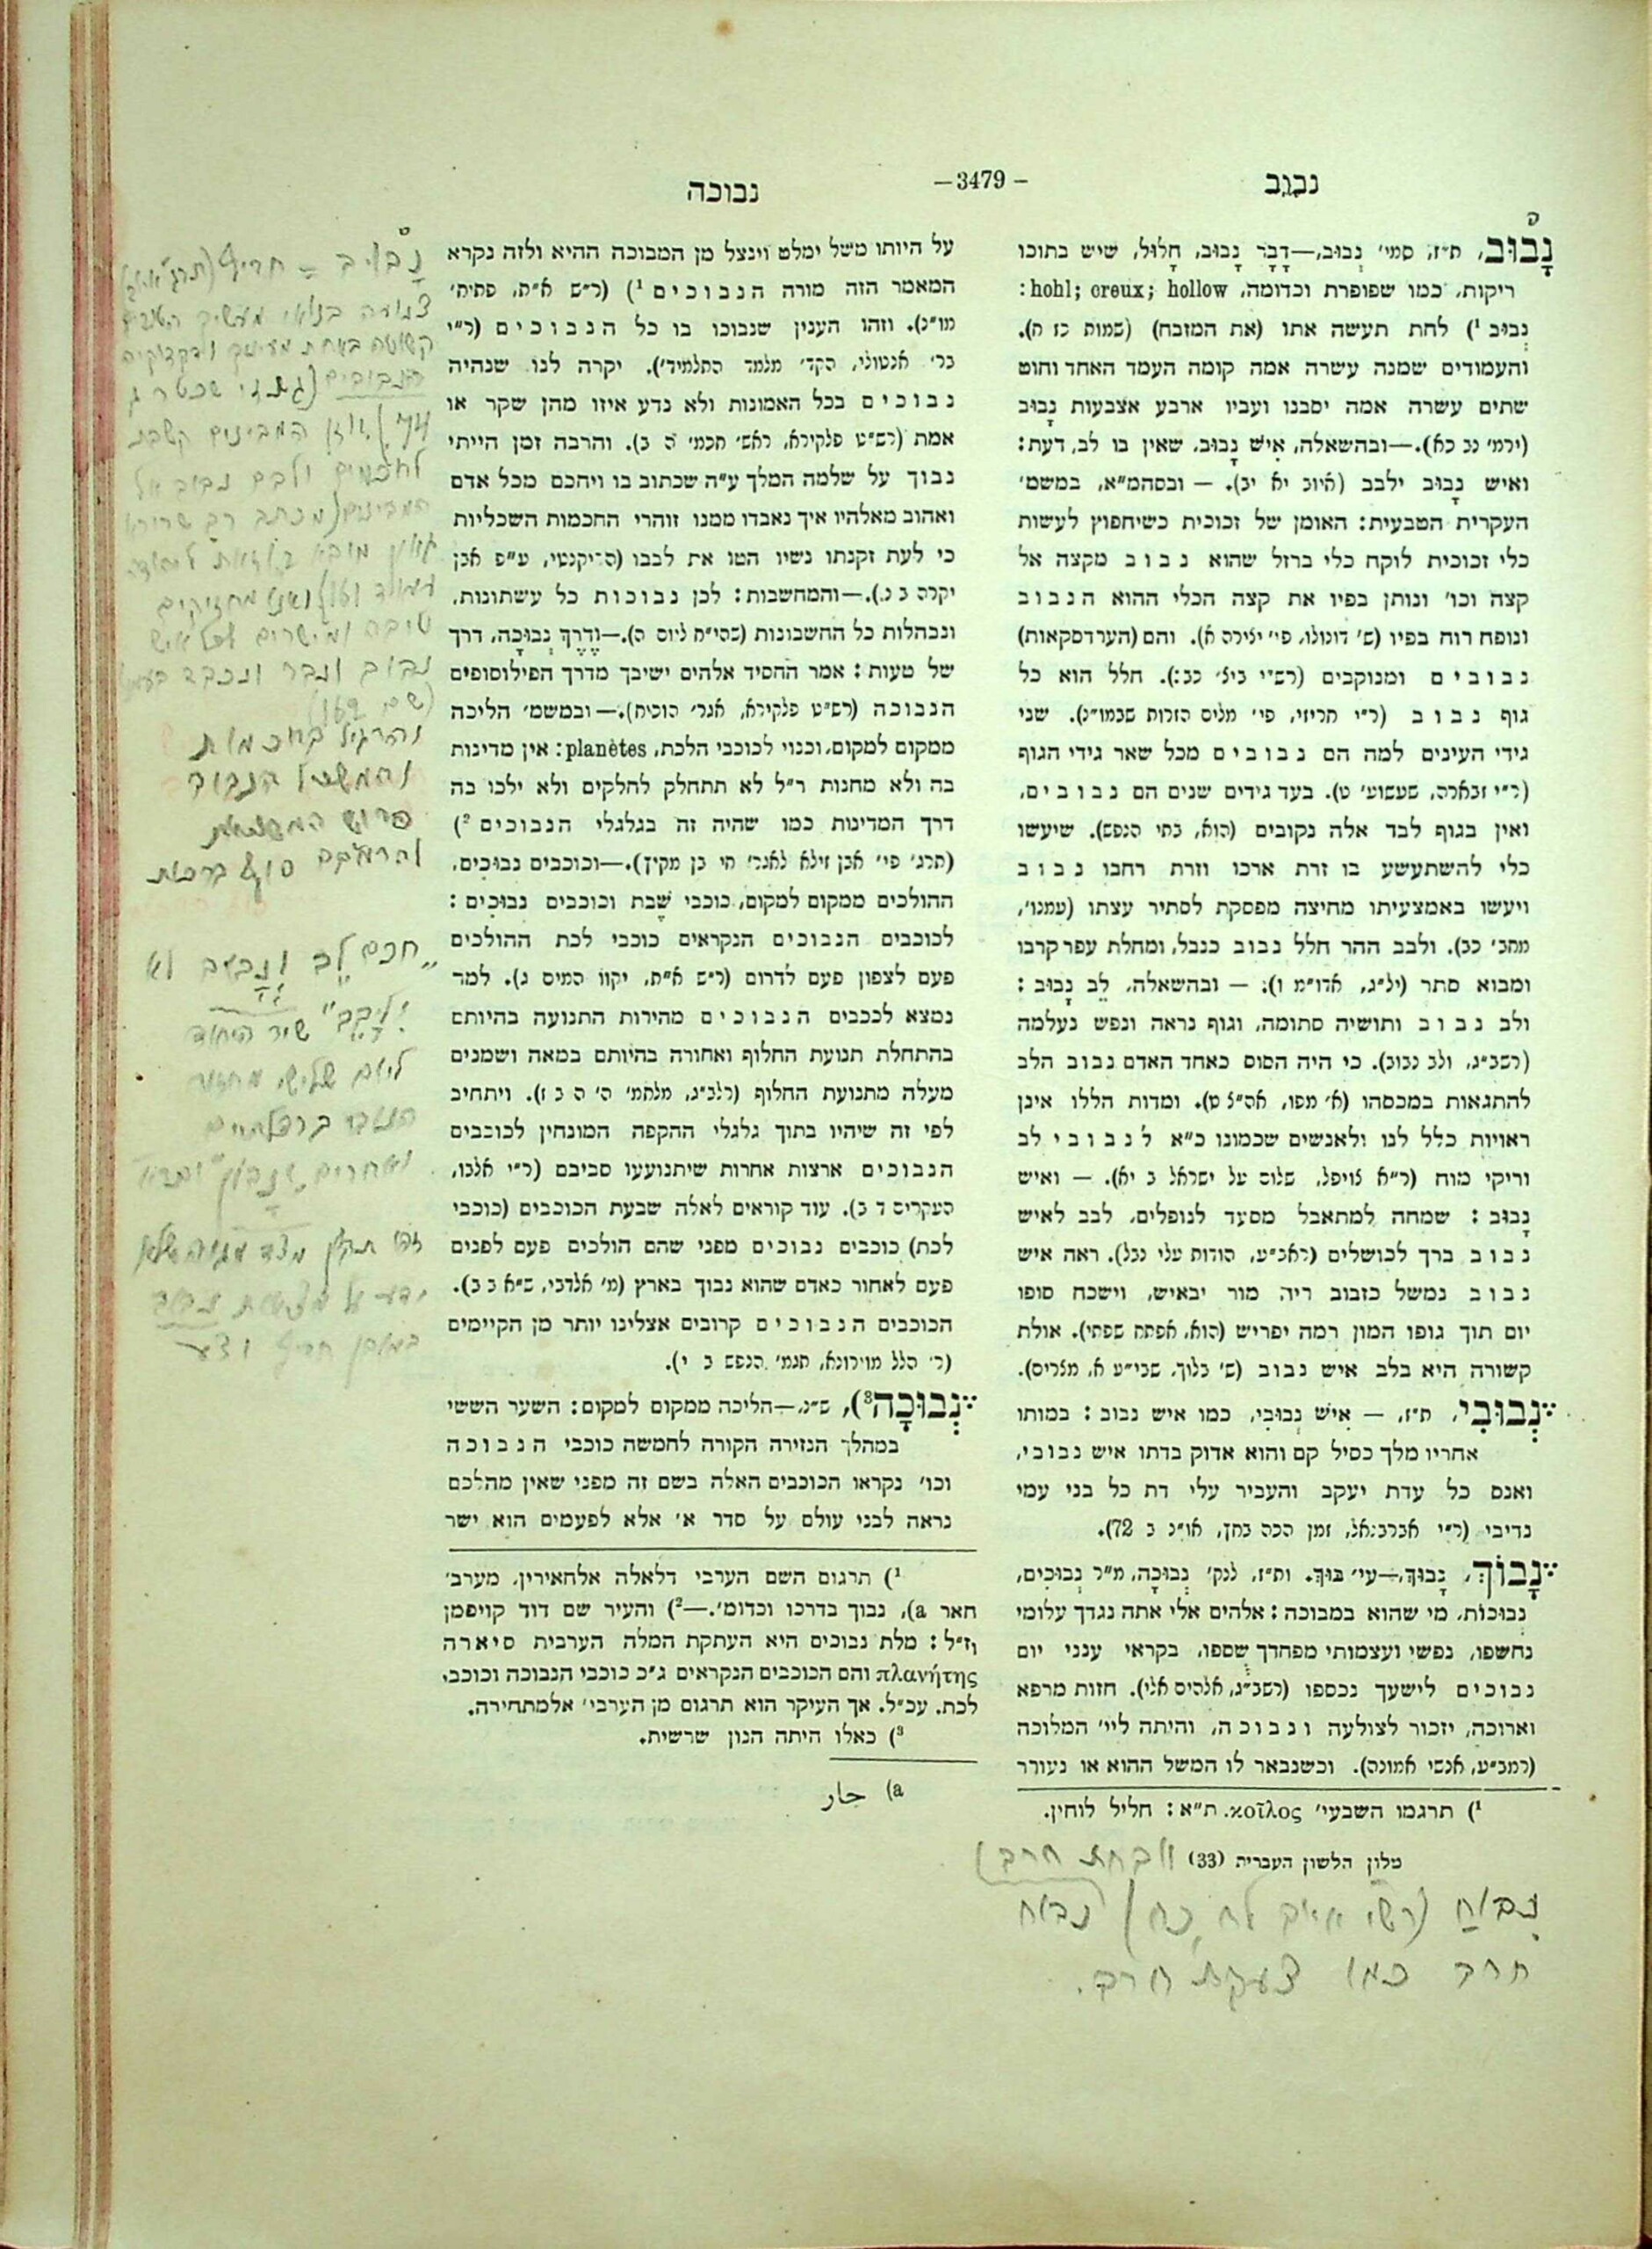 נבוב
— 3479 —
נבוכה
נָבוּב, ת״ז, סמי׳ נְבוּב,—דָבָר נָבוּב, חָלוּל, שיש בתוכו
ריקות, כמו שפופרת וכדומה, hohl; creux; hollow:
נְבוּב ¹) לחת תעשה אתו (את המזבח) (שמות כז ח).
והעמודים שמנה עשרה אמה קומה העמד האחד וחוט
שתים עשרה אמה יסבנו ועביו ארבע אצבעות נָבוּב
(ירמי׳ נב כא).—ובהשאלה, אִישׁ נָבוּב, שאין בו לב, דעת:
ואיש נָבוּב ילבב (איוב יא יב). — ובסהמ״א, במשמ׳
העקרית הטבעית: האומן של זכוכית כשיחפוץ לעשות
כלי זכוכית לוקח כלי ברזל שהוא נבוב מקצה אל
קצה וכו׳ ונותן בפיו את קצה הכלי ההוא הנבוב
ונופח רוח בפיו (ש׳ דונולו, פי׳ יצירה א). והם (הערדסקאות)
נבובים ומנוקבים (רש״י ביצ׳ כב:). חלל הוא כל
גוף נבוב (ר״י חריזי, פי׳ מלים הזרות שבמו״נ). שני
גידי העינים למה הם נבובים מכל שאר גידי הגוף
(ר״י זבארה, שעשוע׳ ט). בעד גידים שנים הם נבובים,
ואין בגוף לבד אלה נקובים (הוא, בתי הנפש). שיעשו
כלי להשתעשע בו זרת ארכו וזרת רחבו נבוב
ויעשו באמצעיתו מחיצה מפסקת לסתיר עצתו (עמנו׳,
מחב׳ כב). ולבב ההר חלל נבוב כנבל, ומחלת עפר קרבו
ומבוא סתר (יל״ג, אדו״מ ו). — ובהשאלה, לֵב נָבוּב:
ולב נבוב ותושיה סתומה, וגוף נראה ונפש נעלמה
(רשב״ג, ולב נבוב). כי היה הסוס כאחד האדם נבוב הלב
להתגאות במכסהו (א׳ מפו, אה״צ ט). ומדות הללו אינן
ראויות כלל לנו ולאנשים שכמונו כ״א לנבובי לב
וריקי מוח (ר״א צויפל, שלום על ישראל ב יא). — ואיש
נָבוּב: שמחה למתאבל מסעד לנופלים, לבב לאיש
נבוב ברך לכושלים (ראב״ע, הודות עלי נבל). ראה איש
נבוב נמשל כזבוב ריה מור יבאיש, וישכח סופו
יום תוך גופו המון רמה יפריש (הוא, אפתח שפתי). אולת
קשורה היא בלב איש נבוב (ש׳ בלוך, שבי״ע א, מצרים).
נְבוּבִי, ת״ז, — אִישׁ נְבוּבִי, כמו איש נבוב: במותו
אחריו מלך כסיל קם והוא אדוק בדתו איש נבובי,
ואנס כל עדת יעקב והעביר עלי דת כל בני עמי
נדיבי (ר״י אברבנאל, זמן הכה בחץ, או״נ ב 72).
נָבוֹךְ, נָבוּךְ,—עי׳ בּוּךְ. ות״ז, לנק׳ נְבוּכָה, מ״ר נְבוּכִים,
נְבוּכוֹת, מי שהוא במבוכה: אלהים אלי אתה נגדך עלומי
נחשפו, נפשי ועצמותי מפחדך שספו, בקראי ענני יום
נבוכים לישעך נכספו (רשב״ג, אלהים אלי). חזות מרפא
וארוכה, יזכור לצולעה ונבוכה, והיתה ליי׳ המלוכה
(רמב״ע, אנשי אמונה). וכשנבאר לו המשל ההוא או נעורר
¹) תרגמו השבעי׳ κοῖλος. ת״א: חליל לוחין.
מלון הלשון העברית (33)
על היותו משל ימלט וינצל מן המבוכה ההיא ולזה נקרא
המאמר הזה מורה הנבוכים ¹) (ר״ש א״ת, פתיח׳
מו״נ). וזהו הענין שנבוכו בו כל הנבוכים (ר״י
בר׳ אנטולי, הקד׳ מלמד התלמיד׳). יקרה לנו שנהיה
נבוכים בכל האמונות ולא נדע איזו מהן שקר או
אמת (רש״ט פלקירא, ראשי׳ חכמ׳ ה ב). והרבה זמן הייתי
נבוך על שלמה המלך ע״ה שכתוב בו ויחכם מכל אדם
ואהוב מאלהיו איך נאבדו ממנו זוהרי החכמות השכליות
כי לעת זקנתו נשיו הטו את לבבו (ס׳ יקנטי, ע״ס אבן
יקרה ב נ).—והמחשבות: לכן נבוכות כל עשתונות,
ונבהלות כל החשבונות (שהי״ח ליום ה).—וְדֶרֶךְ נְבוּכָה, דרך
של טעות: אמר החסיד אלהים ישיבך מדרך הפילוסופים
הנבוכה (רש״ט פלקירא, אגר׳ הוכוח).—ובמשמ׳ הליכה
ממקום למקום, וכנוי לכוכבי הלכת, planètes: אין מדינות
בה ולא מחנות ר״ל לא תתחלק לחלקים ולא ילכו בה
דרך המדינות כמו שהיה זה בגלגלי הנבוכים ²)
(תרג׳ פי׳ אבן זילא לאגר׳ חי בן מקיץ).—וכוכבים נבוכים,
ההולכים ממקום למקום, כוכבי שֶׁבת וכוכבים נבוּכִים:
לכוכבים הנבוכים הנקראים כוכבי לכת ההולכים
פעם לצפון פעם לדרום (ר״ש א״ת, יקוו המים ג). למד
נמצא לככבים הנבוכים מהירות התנועה בהיותם
בהתחלת תנועת החלוף ואחורה בהיותם במאה ושמנים
מעלה מתנועת החלוף (רלב״ג, מלחמ׳ ה׳ ה ב ז). ויתחיב
לפי זה שיהיו בתוך גלגלי ההקפה המונחין לכוכבים
הנבוכים ארצות אחרות שיתנועעו סביבם (ר״י אלבו,
העקרים ד ב). עוד קוראים לאלה שבעת הכוכבים (כוכבי
לכת) כוכבים נבוכים מפני שהם הולכים פעם לפנים
פעם לאחור כאדם שהוא נבוך בארץ (מ׳ אלדבי, ש״א ב ב).
הכוכבים הנבוכים קרובים אצלינו יותר מן הקיימים
(ר׳ הלל מוירונא, תגמ׳ הנפש ב י).
נְבוּכָה³), ש״נ,—הליכה ממקום למקום: השער הששי
במהלך הנזירה הקורה לחמשה כוכבי הנבוכה
וכו׳ נקראו הכוכבים האלה בשם זה מפני שאין מהלכם
נראה לבני עולם על סדר א׳ אלא לפעמים הוא ישר
¹) תרגום השם הערבי דלאלה אלחאירין, מערב׳
חאר a), נבוך בדרכו וכדומ׳.—²) והעיר שם דוד קויפמן
וז״ל: מלת נבוכים היא העתקת המלה הערבית סיארה
πλανήτης והם הכוכבים הנקראים ג״כ כוכבי הנבוכה וכוכבי
לכת. עכ״ל. אך העיקר הוא תרגום מן הערבי׳ אלמתחירה.
³) כאלו היתה הנון שרשית.
a) حار
נבוח (רש״י איוב
חרב כמו צעקת חרב.
והרגיל בחכמות
והמשכיל הנבוב
„חכם לֵב וְנָבוּב לא
ילבב" שיר היחוד
ליום שלישי